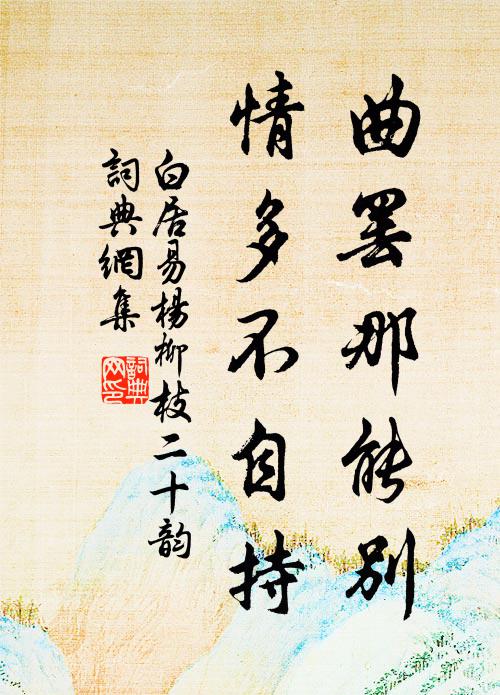 曲罢那能别
情多不自持
白居易楊柳枝二十韵
詞典網集
詞典
网印